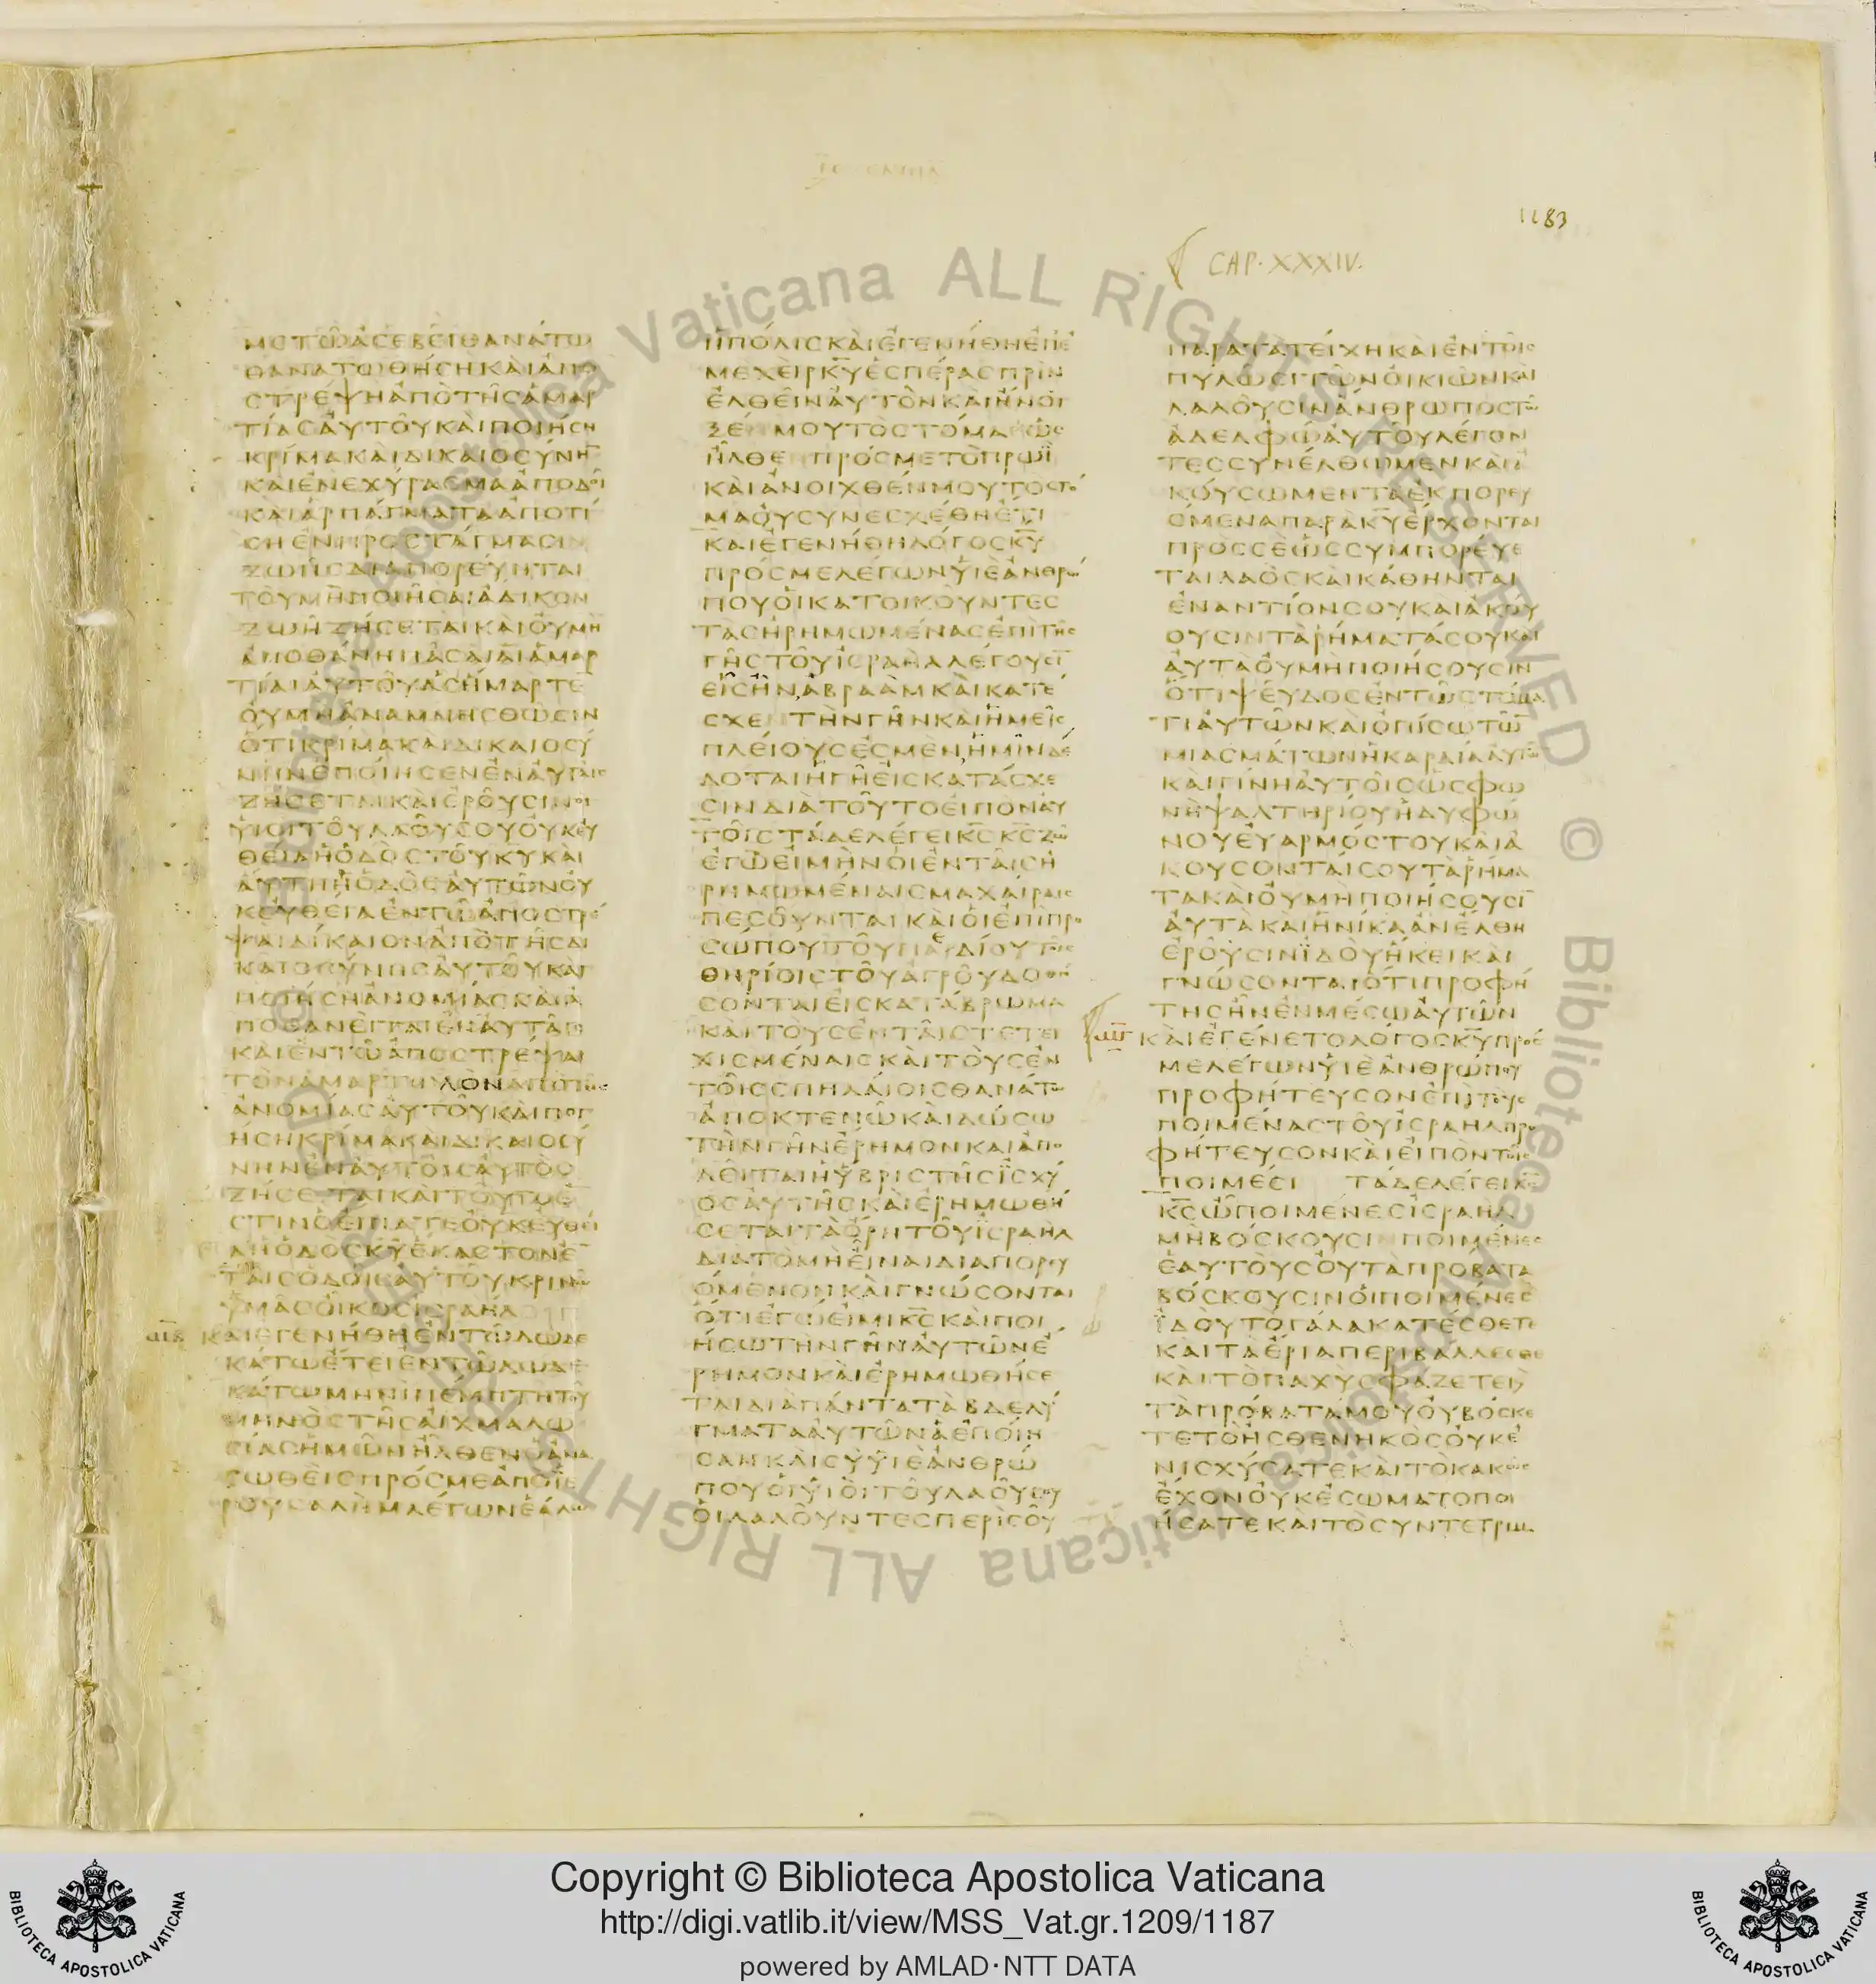 ΙΕΖΕΚΙΗΛ
1183
CAP. XXXIV.
ΜΕ ΤΩ ΑΣΕΒΕΙ ΘΑΝΑΤΩ
ΘΑΝΑΤΩΘΗΣΗ ΚΑΙ ΑΠΟ
ΣΤΡΕΨΗ ΑΠΟ ΤΗΣ ΑΜΑΡ
ΤΙΑΣ ΑΥΤΟΥ ΚΑΙ ΠΟΙΗΣΗ
ΚΡΙΜΑ ΚΑΙ ΔΙΚΑΙΟΣΥΝΗ
ΚΑΙ ΕΝΕΧΥΡΑΣΜΑ ΑΠΟΔΟΙ
ΚΑΙ ΑΡΠΑΓΜΑΤΑ ΑΠΟΤΙ
ΣΗ ΕΝ ΠΡΟΣΤΑΓΜΑΣΙΝ
ΖΩΗΣ ΔΙΑΠΟΡΕΥΗΤΑΙ
ΤΟΥ ΜΗ ΠΟΙΗΣΑΙ ΑΔΙΚΟΝ
ΖΩΗ ΖΗΣΕΤΑΙ ΚΑΙ ΟΥ ΜΗ
ΑΠΟΘΑΝΗ ΠΑΣΑΙ ΑΙ ΑΜΑΡ
ΤΙΑΙ ΑΥΤΟΥ ΑΣ ΗΜΑΡΤΕ
ΟΥ ΜΗ ΑΝΑΜΝΗΣΘΩΣΙΝ
ΟΤΙ ΚΡΙΜΑ ΚΑΙ ΔΙΚΑΙΟΣΥ
ΝΗΝ ΕΠΟΙΗΣΕΝ ΕΝ ΑΥΤΑΙΣ
ΖΗΣΕΤΑΙ ΚΑΙ ΕΡΟΥΣΙΝ ΟΙ
ΥΙΟΙ ΤΟΥ ΛΑΟΥ ΣΟΥ ΟΥΚ ΕΥ
ΘΕΙΑ Η ΟΔΟΣ ΤΟΥ ΚΥ ΚΑΙ
ΑΥΤΗ Η ΟΔΟΣ ΑΥΤΩΝ ΟΥ
Κ ΕΥΘΕΙΑ ΕΝ ΤΩ ΑΠΟΣΤΡΕ
ΨΑΙ ΔΙΚΑΙΟΝ ΑΠΟ ΤΗΣ ΔΙ
ΚΑΙΟΣΥΝΗΣ ΑΥΤΟΥ ΚΑΙ
ΠΟΙΗΣΗ ΑΝΟΜΙΑΣ ΚΑΙ Α
ΠΟΘΑΝΕΙΤΑΙ ΕΝ ΑΥΤΑΙΣ
ΚΑΙ ΕΝ ΤΩ ΑΠΟΣΤΡΕΨΑΙ
ΤΟΝ ΑΜΑΡΤΩΛΟΝ ΑΠΟ ΤΗΣ
ΑΝΟΜΙΑΣ ΑΥΤΟΥ ΚΑΙ ΠΟΙ
ΗΣΗ ΚΡΙΜΑ ΚΑΙ ΔΙΚΑΙΟΣΥ
ΝΗΝ ΕΝ ΑΥΤΟΙΣ ΑΥΤΟΣ
ΖΗΣΕΤΑΙ ΚΑΙ ΤΟΥΤΟ Ε
ΣΤΙΝ Ο ΕΙΠΑΤΕ ΟΥΚ ΕΥΘΕΙ
Α Η ΟΔΟΣ ΚΥ ΕΚΑΣΤΟΝ Ε
ΤΑΙΣ ΟΔΟΙΣ ΑΥΤΟΥ ΚΡΙΝΩ
ΥΜΑΣ ΟΙΚΟΣ ΙΣΡΑΗΛ
ΚΑΙ ΕΓΕΝΗΘΗ ΕΝ ΤΩ ΔΩΔΕ
ΚΑΤΩ ΕΤΕΙ ΕΝ ΤΩ ΔΩΔΕ
ΚΑΤΩ ΜΗΝΙ ΠΕΜΠΤΗ ΤΟΥ
ΜΗΝΟΣ ΤΗΣ ΑΙΧΜΑΛΩ
ΣΙΑΣ ΗΜΩΝ ΗΛΘΕΝ Ο ΑΝΑ
ΣΩΘΕΙΣ ΠΡΟΣ ΜΕ ΑΠΟ ΙΕ
ΡΟΥΣΑΛΗΜ ΛΕΓΩΝ ΕΑΛΩ
Η ΠΟΛΙΣ ΚΑΙ ΕΓΕΝΗΘΗ ΕΠ Ε
ΜΕ ΧΕΙΡ ΚΥ ΕΣΠΕΡΑΣ ΠΡΙΝ
ΕΛΘΕΙΝ ΑΥΤΟΝ ΚΑΙ ΗΝΟΙ
ΞΕ ΜΟΥ ΤΟ ΣΤΟΜΑ ΕΩΣ
ΗΛΘΕ ΠΡΟΣ ΜΕ ΤΟ ΠΡΩΙ
ΚΑΙ ΑΝΟΙΧΘΕΝ ΜΟΥ ΤΟ ΣΤΟ
ΜΑ ΟΥ ΣΥΝΕΣΧΕΘΗ ΕΤΙ
ΚΑΙ ΕΓΕΝΗΘΗ ΛΟΓΟΣ ΚΥ
ΠΡΟΣ ΜΕ ΛΕΓΩΝ ΥΙΕ ΑΝΘΡΩ
ΠΟΥ ΟΙ ΚΑΤΟΙΚΟΥΝΤΕΣ
ΤΑΣ ΗΡΗΜΩΜΕΝΑΣ ΕΠΙ ΤΗΣ
ΓΗΣ ΤΟΥ ΙΣΡΑΗΛ ΛΕΓΟΥΣΙ
ΕΙΣ ΗΝ ΑΒΡΑΑΜ ΚΑΙ ΚΑΤΕ
ΣΧΕ ΤΗΝ ΓΗΝ ΚΑΙ ΗΜΕΙΣ
ΠΛΕΙΟΥΣ ΕΣΜΕΝ ΗΜΙΝ ΔΕ
ΔΟΤΑΙ Η ΓΗ ΕΙΣ ΚΑΤΑΣΧΕ
ΣΙΝ ΔΙΑ ΤΟΥΤΟ ΕΙΠΟΝ ΑΥ
ΤΟΙΣ ΤΑΔΕ ΛΕΓΕΙ ΚΣ ΚΣ ΖΩ
ΕΓΩ ΕΙ ΜΗΝ ΟΙ ΕΝ ΤΑΙΣ Η
ΡΗΜΩΜΕΝΑΙΣ ΜΑΧΑΙΡΑΙΣ
ΠΕΣΟΥΝΤΑΙ ΚΑΙ ΟΙ ΕΠΙ ΠΡΟ
ΣΩΠΟΥ ΤΟΥ ΠΑΙΔΙΟΥ ΤΟΙΣ
ΘΗΡΙΟΙΣ ΤΟΥ ΑΓΡΟΥ ΔΟΘΗ
ΣΟΝΤΑΙ ΕΙΣ ΚΑΤΑΒΡΩΜΑ
ΚΑΙ ΤΟΥΣ ΕΝ ΤΑΙΣ ΤΕΤΕΙ
ΧΙΣΜΕΝΑΙΣ ΚΑΙ ΤΟΥΣ ΕΝ
ΤΟΙΣ ΣΠΗΛΑΙΟΙΣ ΘΑΝΑΤΩ
ΑΠΟΚΤΕΝΩ ΚΑΙ ΔΩΣΩ
ΤΗΝ ΓΗΝ ΕΡΗΜΟΝ ΚΑΙ ΑΠΟ
ΛΕΙΤΑΙ Η ΥΒΡΙΣ ΤΗΣ ΙΣΧΥ
ΟΣ ΑΥΤΗΣ ΚΑΙ ΕΡΗΜΩΘΗ
ΣΕΤΑΙ ΤΑ ΟΡΗ ΤΟΥ ΙΣΡΑΗΛ
ΔΙΑ ΤΟ ΜΗ ΕΙΝΑΙ ΔΙΑΠΟΡΕΥ
ΟΜΕΝΟΝ ΚΑΙ ΓΝΩΣΟΝΤΑΙ
ΟΤΙ ΕΓΩ ΕΙΜΙ ΚΣ ΚΑΙ ΠΟΙ
ΗΣΩ ΤΗΝ ΓΗΝ ΑΥΤΩΝ Ε
ΡΗΜΟΝ ΚΑΙ ΕΡΗΜΩΘΗΣΕ
ΤΑΙ ΔΙΑ ΠΑΝΤΑ ΤΑ ΒΔΕΛΥ
ΓΜΑΤΑ ΑΥΤΩΝ Α ΕΠΟΙΗ
ΣΑΝ ΚΑΙ ΣΥ ΥΙΕ ΑΝΘΡΩ
ΠΟΥ ΟΙ ΥΙΟΙ ΤΟΥ ΛΑΟΥ ΣΟΥ
ΟΙ ΛΑΛΟΥΝΤΕΣ ΠΕΡΙ ΣΟΥ
ΠΑΡΑ ΤΑ ΤΕΙΧΗ ΚΑΙ ΕΝ ΤΟΙΣ
ΠΥΛΩΣΙ ΤΩΝ ΟΙΚΙΩΝ ΚΑΙ
ΛΑΛΟΥΣΙΝ ΑΝΘΡΩΠΟΣ ΤΩ
ΑΔΕΛΦΩ ΑΥΤΟΥ ΛΕΓΟΝ
ΤΕΣ ΣΥΝΕΛΘΩΜΕΝ ΚΑΙ Α
ΚΟΥΣΩΜΕΝ ΤΑ ΕΚΠΟΡΕΥ
ΟΜΕΝΑ ΠΑΡΑ ΚΥ ΕΡΧΟΝΤΑΙ
ΠΡΟΣ ΣΕ ΩΣ ΣΥΜΠΟΡΕΥΕ
ΤΑΙ ΛΑΟΣ ΚΑΙ ΚΑΘΗΝΤΑΙ
ΕΝΑΝΤΙΟΝ ΣΟΥ ΚΑΙ ΑΚΟΥ
ΟΥΣΙΝ ΤΑ ΡΗΜΑΤΑ ΣΟΥ ΚΑΙ
ΑΥΤΑ ΟΥ ΜΗ ΠΟΙΗΣΟΥΣΙΝ
ΟΤΙ ΨΕΥΔΟΣ ΕΝ ΤΩ ΣΤΟΜΑ
ΤΙ ΑΥΤΩΝ ΚΑΙ ΟΠΙΣΩ ΤΩ
ΜΙΑΣΜΑΤΩΝ Η ΚΑΡΔΙΑ ΑΥΤΩ
ΚΑΙ ΓΙΝΗ ΑΥΤΟΙΣ ΩΣ ΦΩ
ΝΗ ΨΑΛΤΗΡΙΟΥ ΗΔΥΦΩ
ΝΟΥ ΕΥΑΡΜΟΣΤΟΥ ΚΑΙ Α
ΚΟΥΣΟΝΤΑΙ ΣΟΥ ΤΑ ΡΗΜΑ
ΤΑ ΚΑΙ ΟΥ ΜΗ ΠΟΙΗΣΟΥΣΙ
ΑΥΤΑ ΚΑΙ ΗΝΙΚΑ ΑΝ ΕΛΘΗ
ΕΡΟΥΣΙΝ ΙΔΟΥ ΗΚΕΙ ΚΑΙ
ΓΝΩΣΟΝΤΑΙ ΟΤΙ ΠΡΟΦΗ
ΤΗΣ ΗΝ ΕΝ ΜΕΣΩ ΑΥΤΩΝ
ΚΑΙ ΕΓΕΝΕΤΟ ΛΟΓΟΣ ΚΥ ΠΡΟΣ
ΜΕ ΛΕΓΩΝ ΥΙΕ ΑΝΘΡΩΠΟΥ
ΠΡΟΦΗΤΕΥΣΟΝ ΕΠΙ ΤΟΥΣ
ΠΟΙΜΕΝΑΣ ΤΟΥ ΙΣΡΑΗΛ ΠΡΟ
ΦΗΤΕΥΣΟΝ ΚΑΙ ΕΙΠΟΝ ΤΟΙΣ
ΠΟΙΜΕΣΙ ΤΑΔΕ ΛΕΓΕΙ ΚΣ
ΚΣ Ω ΠΟΙΜΕΝΕΣ ΙΣΡΑΗΛ
ΜΗ ΒΟΣΚΟΥΣΙ ΠΟΙΜΕΝΕΣ
ΕΑΥΤΟΥΣ ΟΥ ΤΑ ΠΡΟΒΑΤΑ
ΒΟΣΚΟΥΣΙΝ ΟΙ ΠΟΙΜΕΝΕΣ
ΙΔΟΥ ΤΟ ΓΑΛΑ ΚΑΤΕΣΘΕΤΕ
ΚΑΙ ΤΑ ΕΡΙΑ ΠΕΡΙΒΑΛΛΕΣΘΕ
ΚΑΙ ΤΟ ΠΑΧΥ ΣΦΑΖΕΤΕ Ϗ
ΤΑ ΠΡΟΒΑΤΑ ΜΟΥ ΟΥ ΒΟΣΚΕ
ΤΕ ΤΟ ΗΣΘΕΝΗΚΟΣ ΟΥΚ Ε
ΝΙΣΧΥΣΑΤΕ ΚΑΙ ΤΟ ΚΑΚΩΣ
ΕΧΟΝ ΟΥΚ ΕΣΩΜΑΤΟΠΟΙ
ΗΣΑΤΕ ΚΑΙ ΤΟ ΣΥΝΤΕΤΡΙΜ
Copyright © Biblioteca Apostolica Vaticana
http://digi.vatlib.it/view/MSS_Vat.gr.1209/1187
powered by AMLAD·NTT DATA